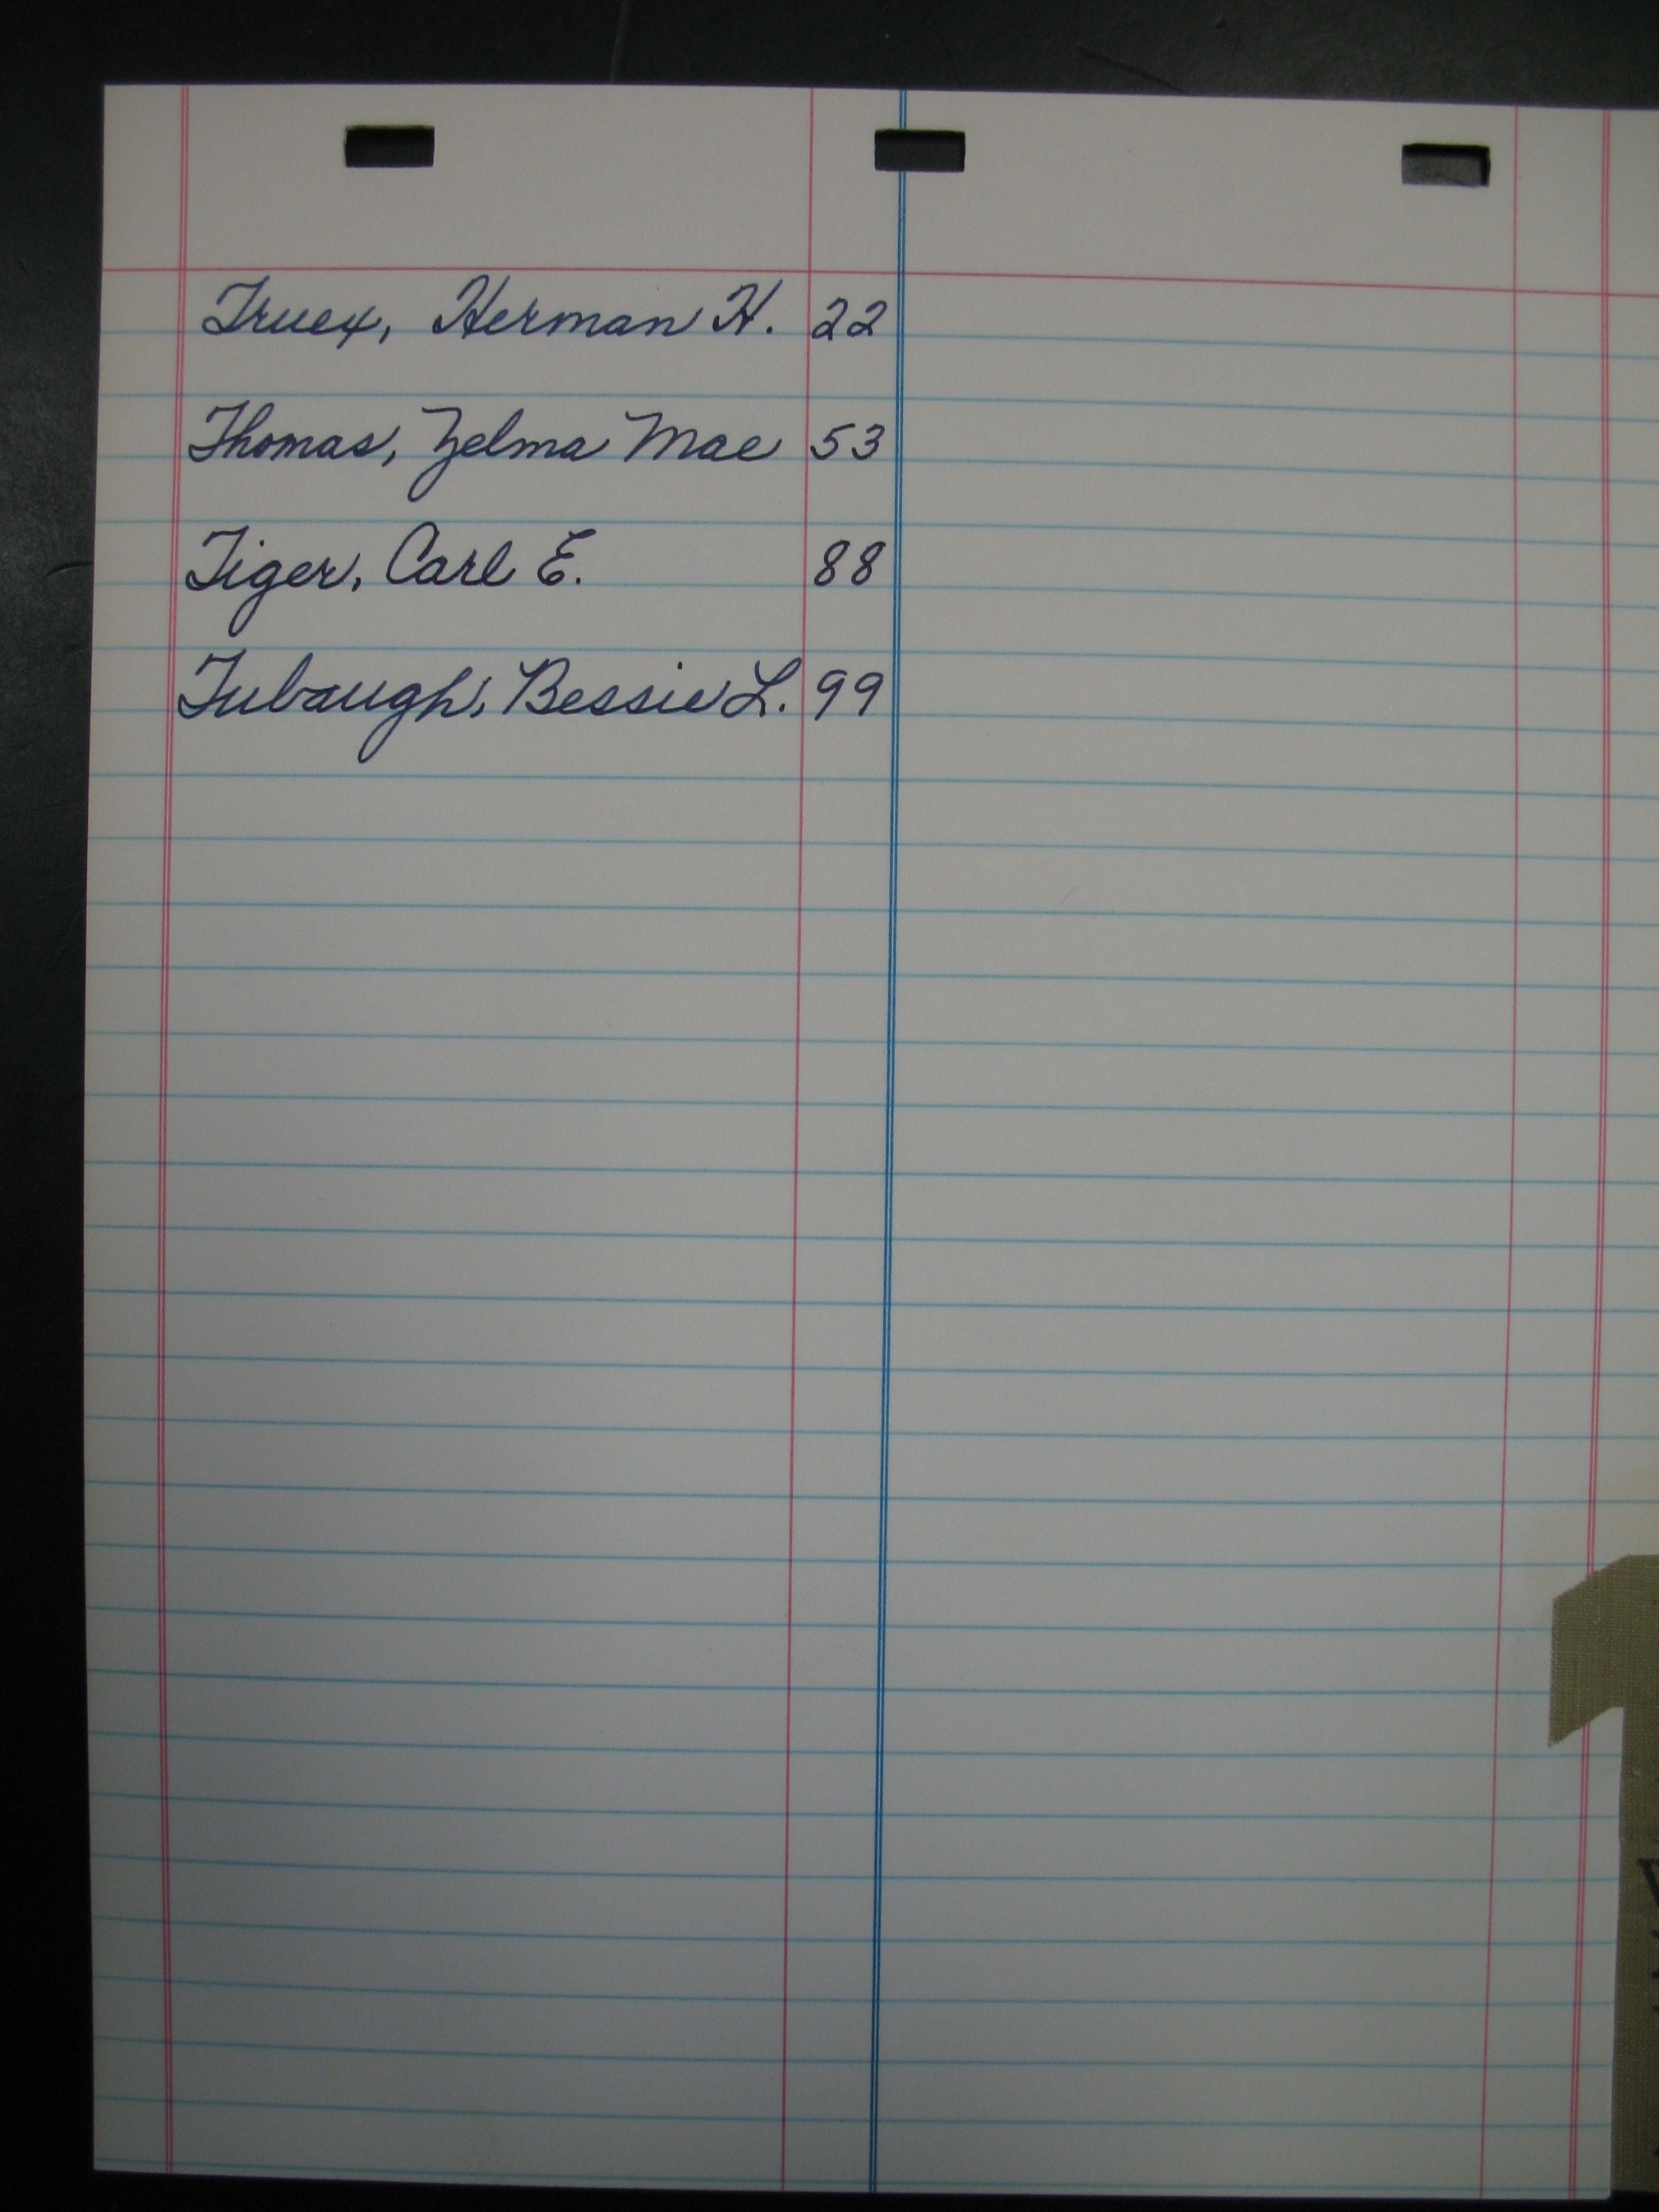 Truex, Herman H. 22
Thomas, Zelma Mae 53
Tiger, Carl E. 88
Tubaugh, Bessie L. 99